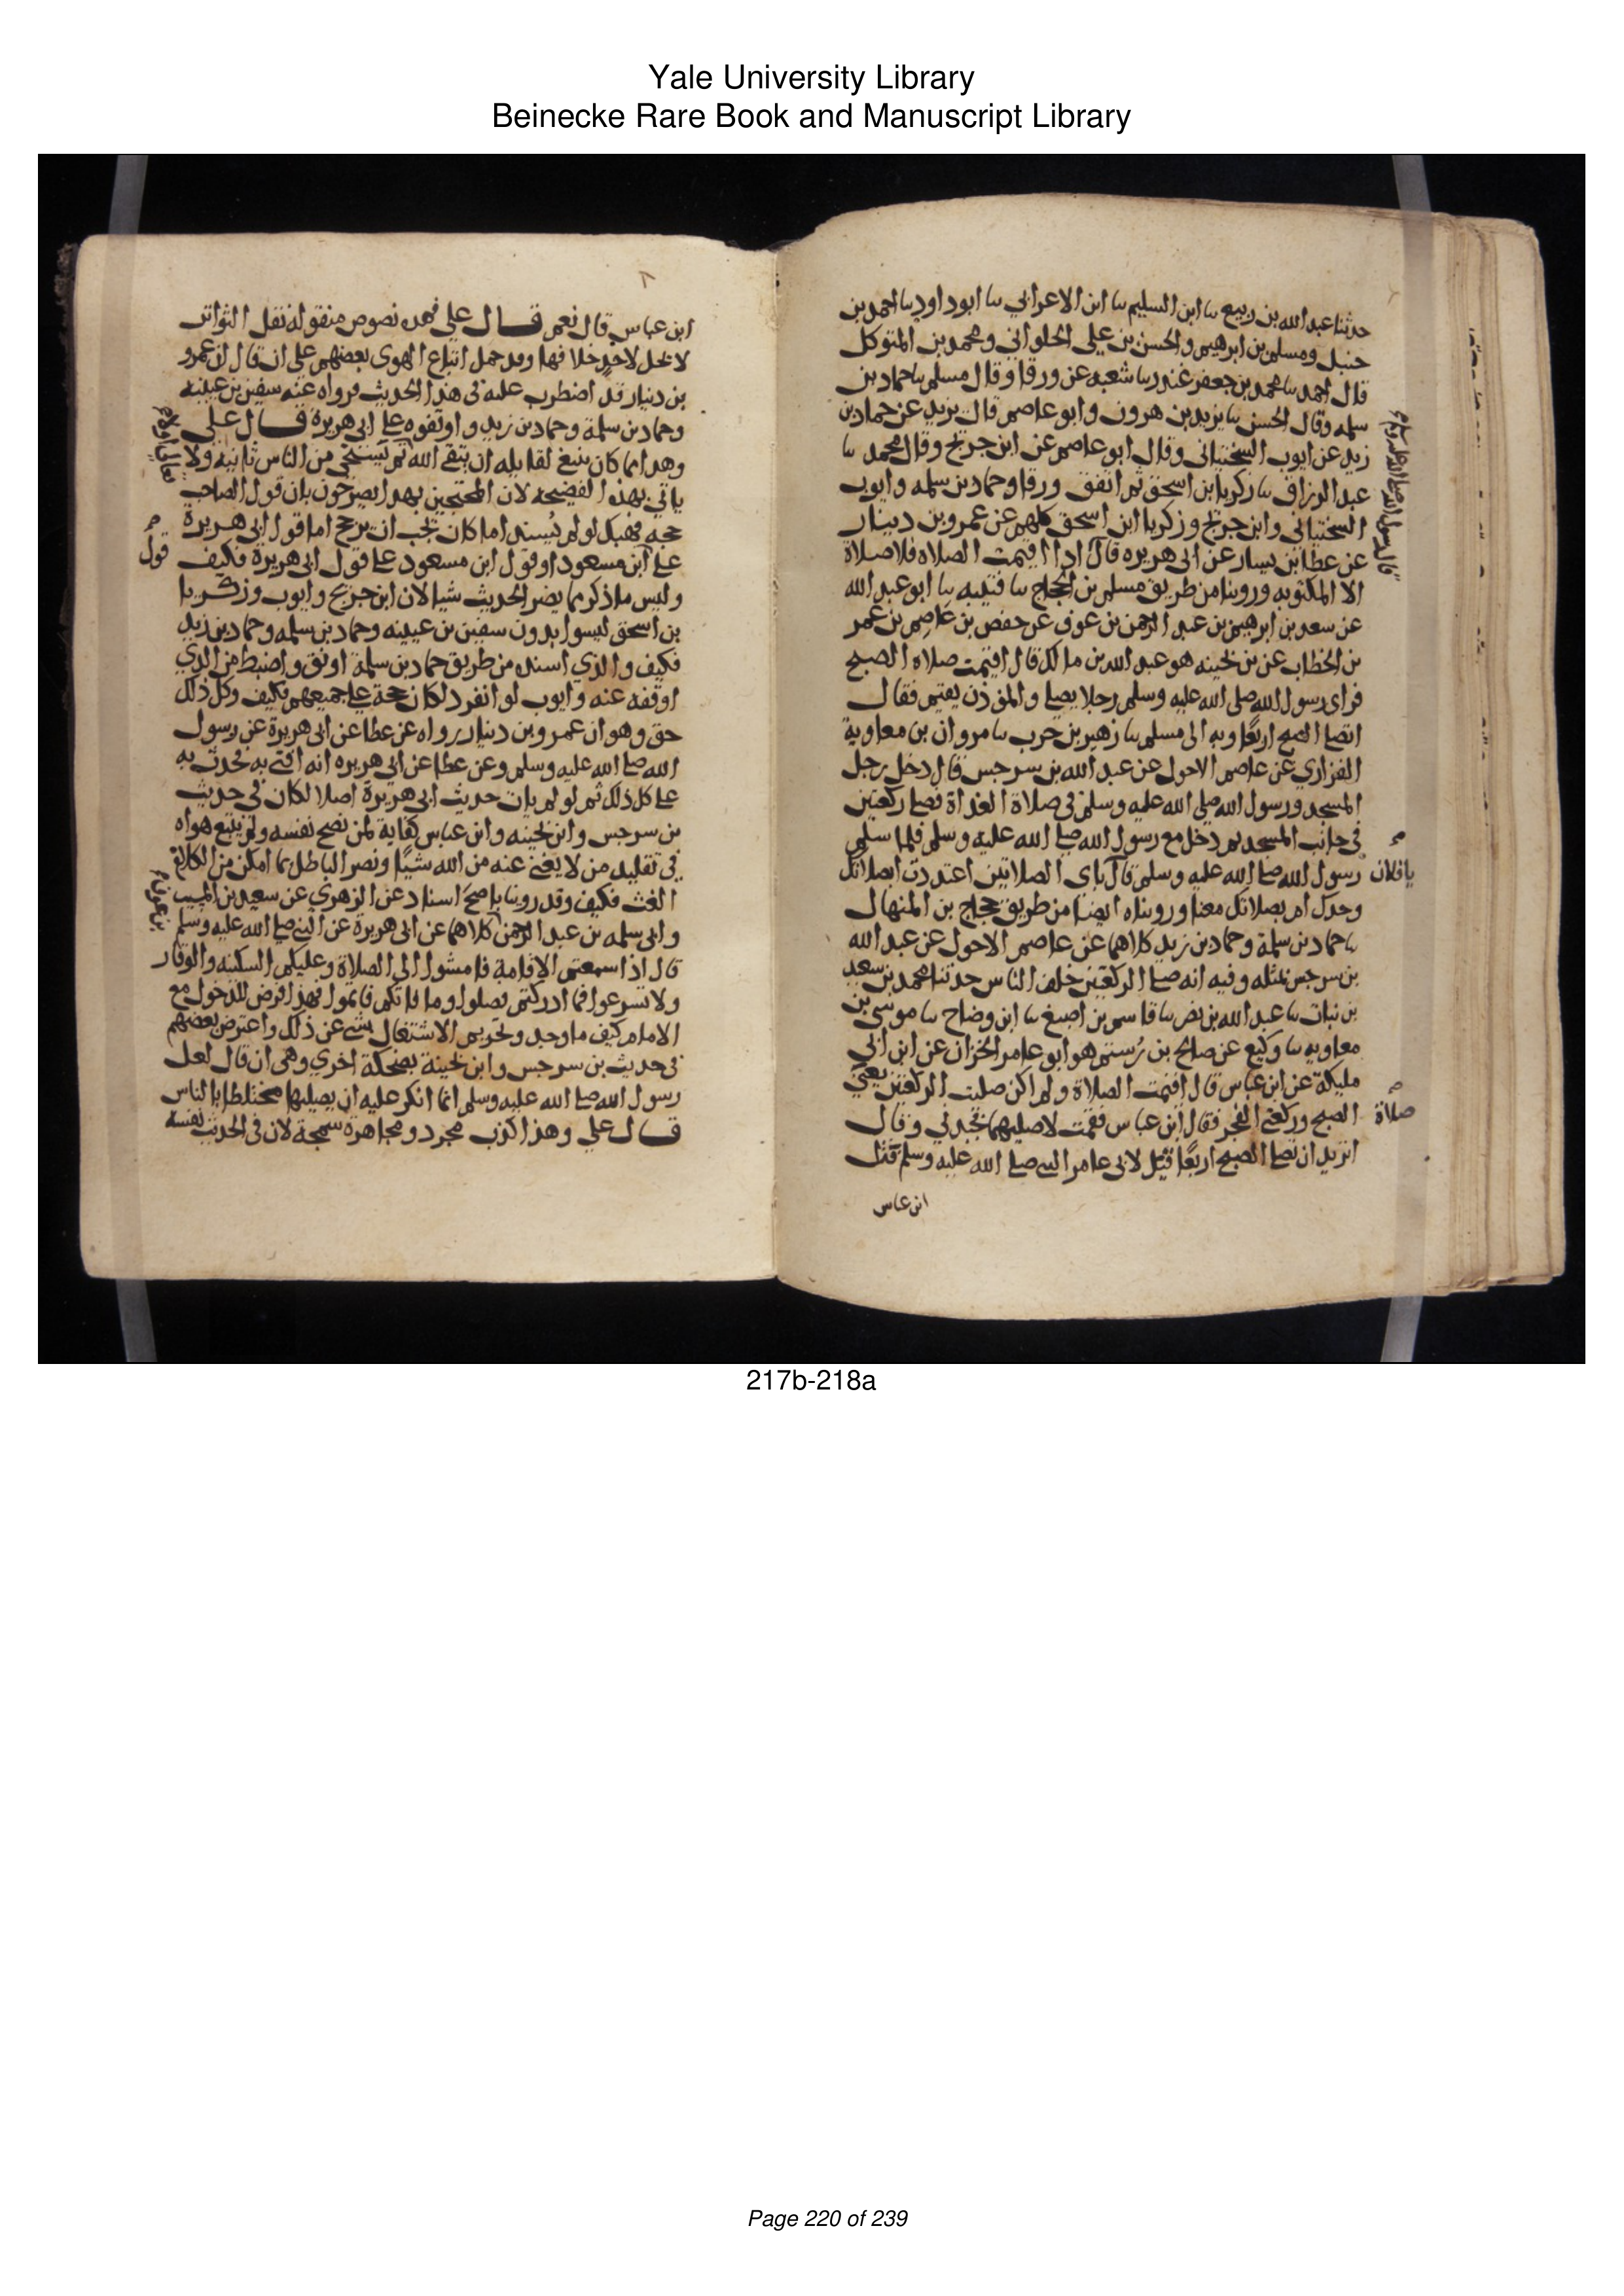 Yale University Library
Beinecke Rare Book and Manuscript Library
حدثنا عبد الله بن ربيع ىا ابن السليم ىا ابن الاعرابي ىا ابو داود ىا احمد بن
حنبل ومسلم بن ابرهيم والحسن بن علي الحلواني ومحمد بن المتوكل
قال احمد ىا محمد بن جعفر غندر ىا شعبه عن ورقا وقال مسلم ىا حماد بن
سلمه وقال الحسن ىا يزيد بن هرون وابو عاصم قال يزيد عن حماد بن
زيد عن ايوب السختياني وقال ابو عاصم عن ابن جريج وقال محمد ىا
عبد الرزاق ىا زكريا ابن اسحق ثم اتفق ورقا وحماد بن سلمه وايوب
السختياني وابن جريج وزكريا ابن اسحق كلهم عن عمرو بن دينار
عن عطا بن يسار عن ابي هريره قال اذا اقيمت الصلاه فلا صلاة
قال رسول الله صلى الله عليه وسلم
الا المكتوبه وروينا من طريق مسلم بن الحجاج ىا قتيبه ىا ابو عبد الله
عن سعد بن ابرهيم بن عبد الرحمن بن عوف عن حفص بن عاصم بن عمر
بن الخطاب عن بن بحينه هو عبد الله بن مالك قال اقيمت صلاه الصبح
فراى رسول الله صلى الله عليه وسلم رجلا يصلي والموذن يقيم فقال
اتصلي الصبح اربعًا وبه الى مسلم ىا زهير بن حرب ىا مروان بن معاوية
الفزاري عن عاصم الاحول عن عبد الله بن سرجس قال دخل رجل
المسجد ورسول الله صلى الله عليه وسلم في صلاة الغداة فصلى ركعتين
في جانب المسجد ثم دخل مع رسول الله صلى الله عليه وسلم فلما سلم
رسول الله صلى الله عليه وسلم قال باي الصلاتين اعتددت ابصلاتك
يا فلان
وحدك ام بصلاتك معنا ورويناه ايضا من طريق حجاج بن المنهال
ىا حماد بن سلمة وحماد بن زيد كلاهما عن عاصم الاحول عن عبد الله
بن سرجس بمثله وفيه انه صلى الركعتين خلف الناس حدثنا محمد بن سعيد
بن نبات ىا عبد الله بن نصر ىا قاسم بن اصبغ ىا ابن وضاح ىا موسى بن
معاويه ىا وكيع عن صالح بن رُستم هو ابو عامر الخزان عن ابن ابي
مليكة عن ابن عباس قال اقيمت الصلاة ولم اكن صليت الركعتين يعني
الصبح وركعتي الفجر فقال ابن عباس فقمت لاصليهما فجبدني وقال
صلاة
اتريد ان تصلي الصبح اربعًا قيل لابي عامر النبي صلى الله عليه وسلم قال
ابن عباس
ابن عباس قال نعم قال علي فهذه نصوص منقوله نقل التواتر
لا يحل لاحدٍ خلافها وقد حمل اتباع الهوى بعضهم على ان قال ان عمرو
بن دينار قد اضطرب عليه في هذا الحديث فرواه عنه سفين بن عيينه
وحماد بن سلمة وحماد بن زيد واوقفوه على ابي هريرة قال علي
وهذا مما كان ينبغي لقايله ان يتقي الله ثم يستحيي من الناس ثانيه ولا
ياتي بهذه الفضيحه لان المحتجين بهذا يصرحون بان قول الصاحب
حجه فهبك لو لم يُسند اما كان يجب ان يرجح اما قول ابي هريرة
على ابن مسعود او قول ابن مسعود على قول ابي هريرة فكيف
قول
وليس ما ذكر مما يضر الحديث شيا لان ابن جريج وايوب وزكريا
بن اسحق ليسوا بدون سفين بن عيينه وحماد بن سلمه وحماد بن زيد
فكيف والذي اسنده من طريق حماد بن سلمة اوثق واضبط من الذي
اوقفه عنه وايوب لو انفرد لكان حجة على جميعهم فكيف وكل ذلك
حق وهو ان عمرو بن دينار رواه عن عطا عن ابي هريرة عن رسول
الله صلى الله عليه وسلم وعن عطا عن ابي هريره انه افتى به فحدث به
على كل ذلك ثم لو لم يات حديث ابي هريرة اصلا لكان في حديث
بن سرجس وابن بحينه وابن عباس كفاية لمن نصح نفسه ولم يتبع هواه
في تقليد من لا يغني عنه من الله شيًا ونصر الباطل بما امكن من الكلام
الغث فكيف وقد روينا باصح اسناد عن الزهري عن سعيد بن المسيب
وابي سلمه بن عبد الرحمن كلاهما عن ابي هريرة عن النبي صلى الله عليه وسلم
قال اذا سمعتم الاقامة فامشوا الى الصلاة وعليكم السكينه والوقار
ولا تسرعوا فما ادركتم فصلوا وما فاتكم فاتموا فهذا فرض للدخول مع
الامام كيف ما وجد وتحريم الاشتغال بشي عن ذلك واعترض بعضهم
في حديث بن سرجس وابن بحينة بضحكة اخري وهي ان قال لعل
رسول الله صلى الله عليه وسلم انما انكر عليه ان يصليها مختلطا بالناس
قال علي وهذا كذب مجرد ومجاهرة سمجة لان في الحديث نفسه
217b-218a
Page 220 of 239